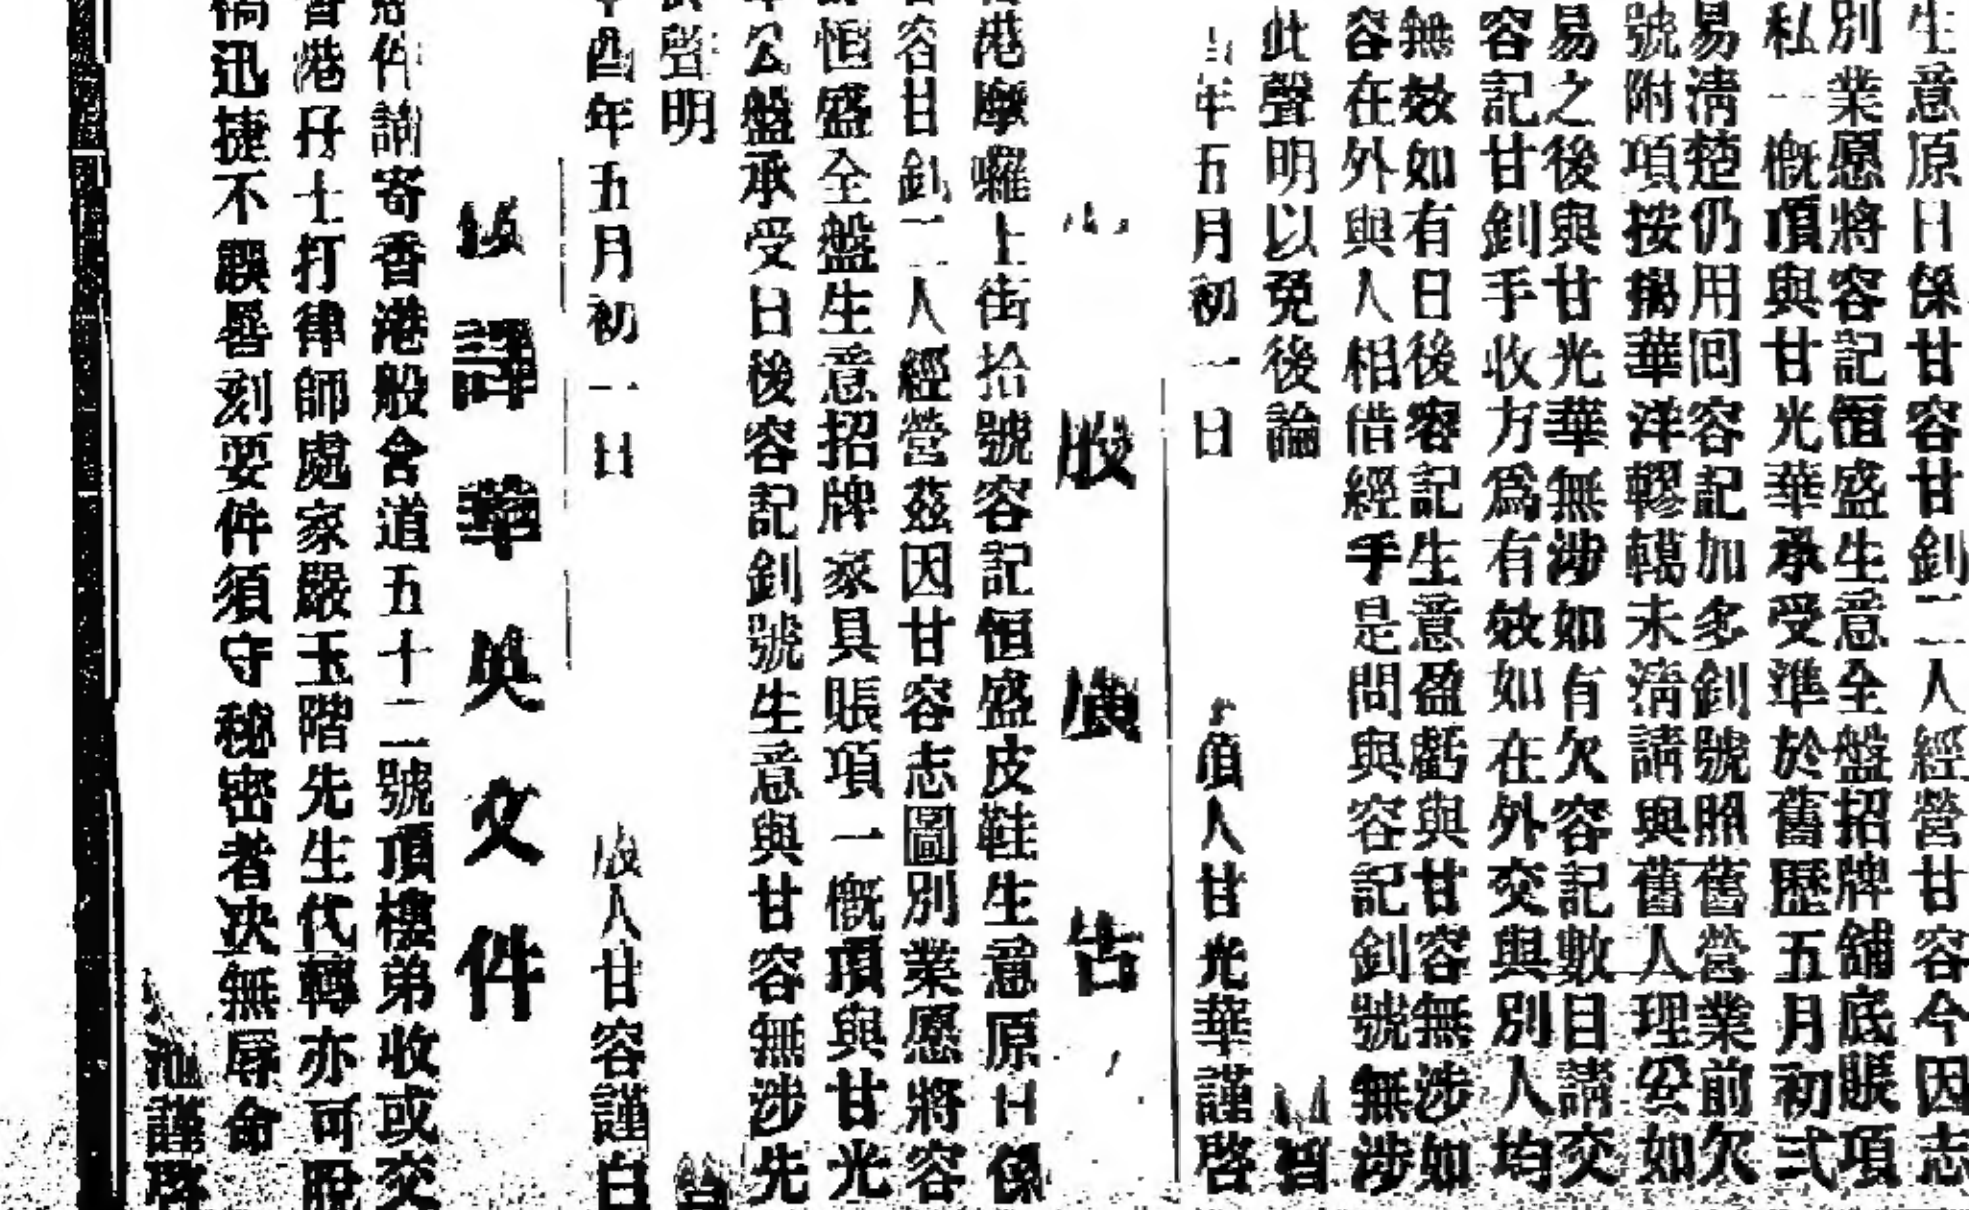 生意原日係甘容甘釗二人經營甘容今因志
別業愿將容記恒盛生意全盤招牌舖底賬項
私一概頂與甘光華承受準於舊歷五月初弍
易清楚仍用囘容記加多釗號照舊營業前欠
號附項按揭華洋轇轕未清請與舊人理妥如
易之後與甘光華無涉如有欠容記數目請交
容記甘釗手收方爲有效如在外交與別人均
無效如有日後容記生意盈虧與甘容無涉如
容在外與人相借經手是問與容記釗號無涉
此聲明以免後論
年五月初一日 頂人甘光華謹啓
股廣告
港摩囉上街拾號容記恒盛皮鞋生意原日係
容甘釗二人經營茲因甘容志圖別業愿將容
恒盛全盤生意招牌家具賬項一概頂與甘光
公盤承受日後容記釗號生意與甘容無涉先
聲明
酉年五月初一日 股人甘容謹白
譯華英文件
件請寄香港般含道五十二號頂樓弟收或交
香港孖士打律師處家嚴玉階先生代轉亦可脫
稿迅捷不誤晷刻要件須守秘密者决無辱命
謹啓